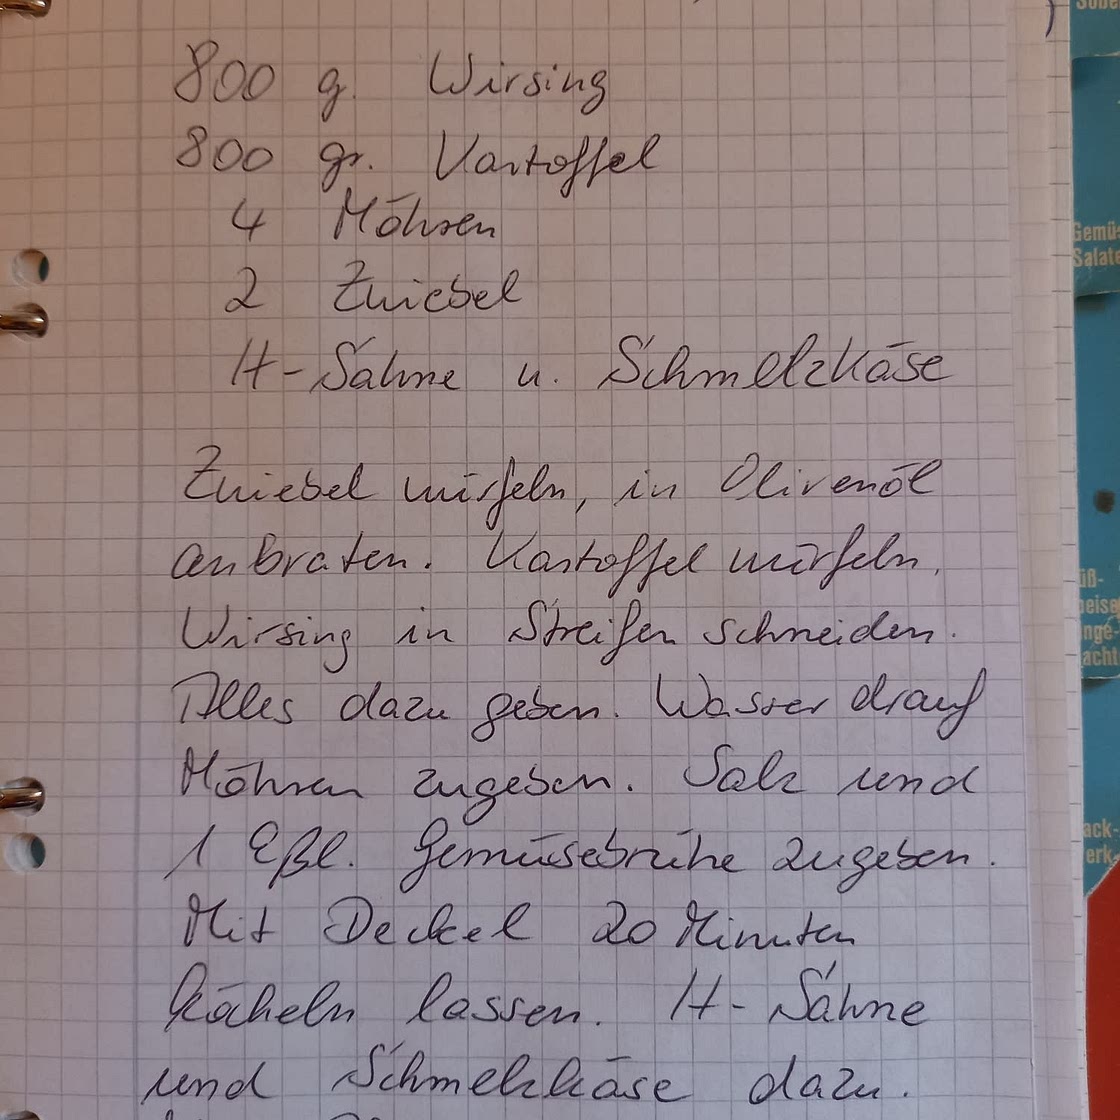 800 g. Wirsing
800 gr. Kartoffel
4 Möhren
2 Zwiebel
H-Sahne u. Schmelzkäse
Zwiebel würfeln, in Olivenöl
anbraten. Kartoffel würfeln.
Wirsing in Streifen schneiden.
Alles dazu geben. Wasser drauf
Möhren zugeben. Salz und
1 Eßl. Gemüsebrühe zugeben.
Mit Deckel 20 Minuten
köcheln lassen. H-Sahne
und Schmelzkäse dazu.
Gemü-
Salate
üß-
peise
nge-
acht
ack-
erk